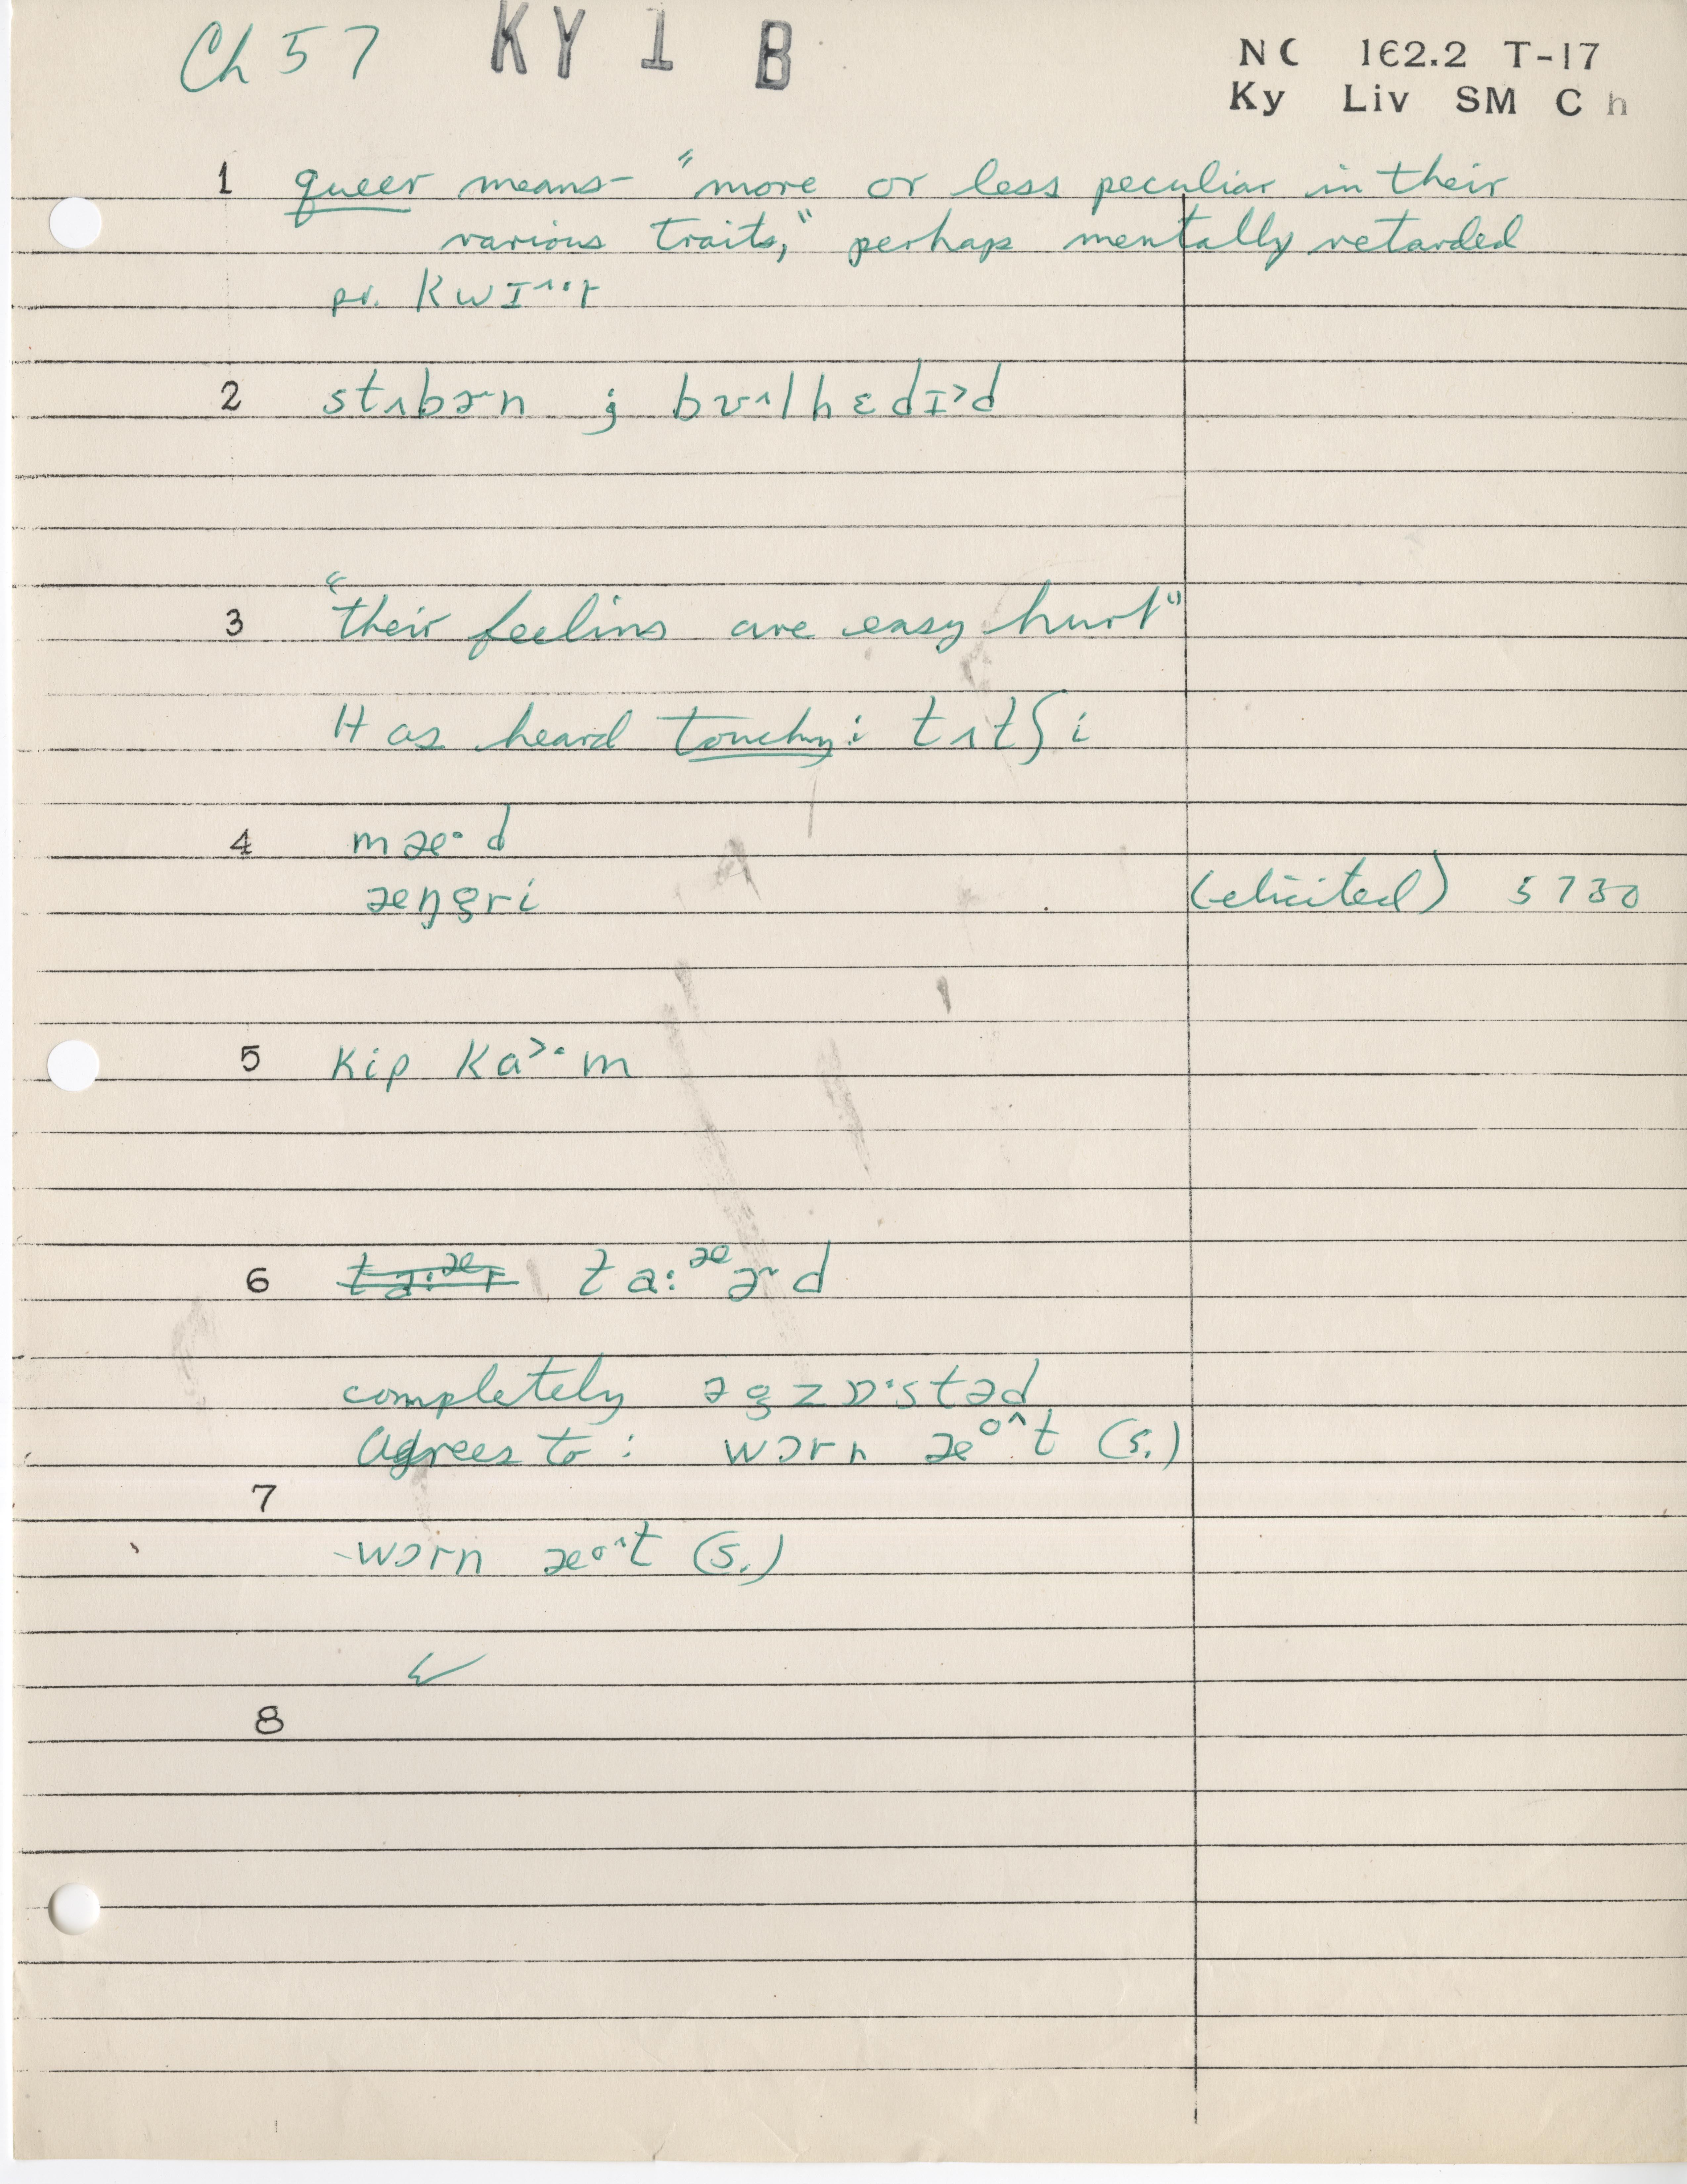 Ch 57 KY 1 B
NC 162.2 T-17
Ky Liv SM Ch
1 queer means - "more or less peculiar in their
various traits," perhap mentally retarded
pr. kwɪ^^·r
2 stʌbɚn ; bʊ^lhɛdɪ>d
3 "their feelins are easy hurt"
Has heard touchy: tʌtʃi
4 mæ·d
æŋgri (elicited) 5730
5 kip ka>·m
6 ta:ᵆɚd
completely əgzɒ·stəd
Agrees to: wɔrn æᵒ^t (s.)
7
wɔrn æo^t (s.)
8